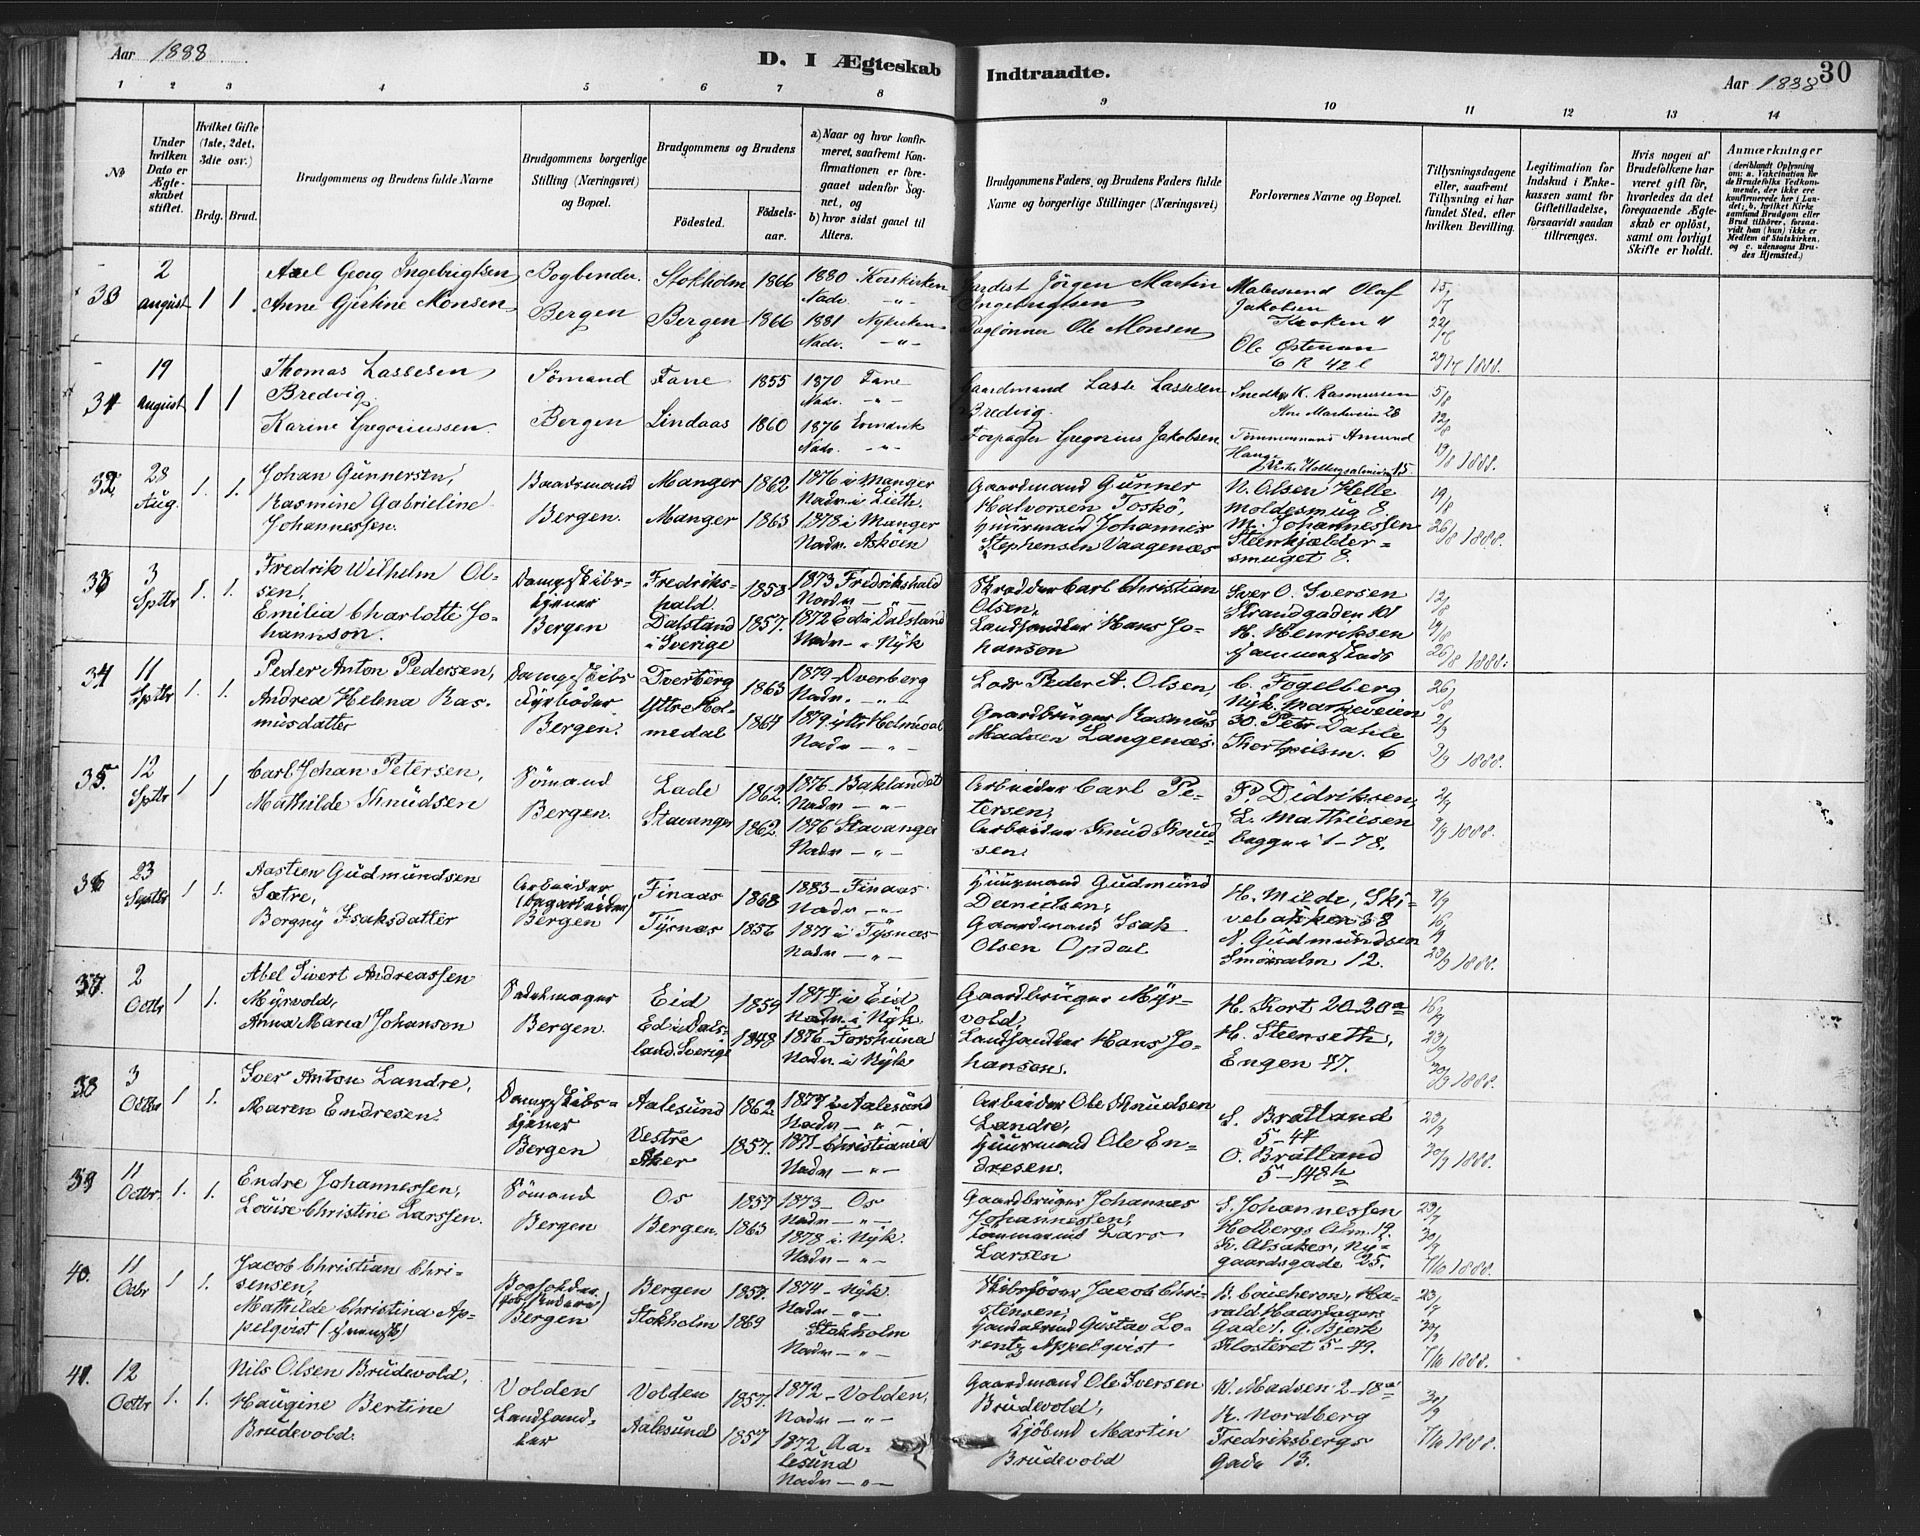 Aar 1888
D. I Ægteskab
Indtraadte.
Aar 1888
30
1 2 3 4 5 6 7 8 9 10 11 12 13 14
No
Under hvilken Dato er Ægteskabet stiftet.
Hvilket Gifte (1ste, 2det, 3die osv.)
Brdg. Brud.
Brudgommens og Brudens fulde Navne
Brudgommens borgerlige Stilling (Næringsvei) og Bopæl.
Brudgommens og Brudens
Födested.
Födselsaar.
a) Naar og hvor konfirmeret, saafremt Konfirmationen er foregaaet udenfor Sognet, og
b) hvor sidst ganet til Alters.
Brudgommens Faders, og Brudens Faders fulde Navne og borgerlige Stillinger (Næringsvei)
Forlovernes Navne og Bopæl.
Tillysningsdagene eller, saafremt Tillysning ei har fundet Sted, efter hvilken Bevilling.
Legitimation for Indskud i Enkekassen samt for Giftetilladelse, forsaavidt saadan tiltrænges.
Hvis nogen af Brudefolkene har været gift før, hvorledes da det foregaaende Ægteskab er oplöst, samt om lovligt Skifte er holdt.
Anmærkninger (deriblandt Oplysning om: a. Vakcination for de Brudefolks Vedkommende, der ikke ere konfirmerede her i Landet; b, hvilket Kirkesamfund Brudgom eller Brud tilhörer, forsaavidt han (hun) ikke er Medlem af Statskirken, og c. udensogns Brudes Hjemsted.)
2 august 1 1
Axel Georg Ingebrigtsen, Bogbinder Stokholm 1866 1880 Korskirken
Anne Gjertine Monsen Bergen Bergen 1866 Nadv. 1881 Nykirken Nadv. — „ —
Jørgen Martin Ingebrigtsen
Daglönner Ole Monsen
Olaf Jakobsen
Ole Østman
15/7 22/7 29/7 1888.
19 august 1 1
Thomas Lassesen Bredvig Sömand Fane 1855 1870 Fane Nadv. — „ —
Karine Gregoriussen Bergen Lindaas 1860 1876 Nadv. — „ —
Gaardmand Lasse Lassesen Bredvig.
Forpagter Gregorius Jakobsen
Snedker K. Rasmussen
Tömmermand Amund Haug
5/8 12/8 19/8 1888.
32. 28 Aug. 1. 1.
Johan Gunnersen, Baadsmand Manger 1862 1876 i Manger Nadv. i Lieth.
Rasmine Gabrieline Johannessen. Bergen. Manger 1863 1878 i Manger Nadv. Asköen
Gaardmand Gunner Halvorsen Toskö,
Huusmand Johannes Stephensen Vaagenæs
N. Olsen Helle Moldesmug 8.
M. Johannessen Steenkjældersmuget 8.
19/8 26/8 1888.
33 3 Sptbr 1. 1.
Fredrik Wilhelm Olsen, Dampskibs- Fredrikshald. 1858 1873 Fredrikshald Nadv. — „ —
Emilia Charlotte Johannson. Bergen Dalsland i Sverige 1857. 1872 Ed i Dalsland Nadv. — „ Nyk
Skrædder Carl Christian Olsen,
Landhandler Hans Johanson
Iver O. Iversen Strandgaden
H. Henriksen
12/8 19/8 26/8 1888.
34 11 Sptbr 1. 1.
Peder Anton Pedersen, Dampskibs Fyrböder Dverberg 1863 1879 Dverberg Nadv. — „ —
Andrea Helena Rasmusdatter Bergen. Yttre Holmedal 1867 1879 i Nadv. — „ —
Lods Peder A. Olsen,
Gaardbruger Rasmus Madsen Langenæs.
C. Fogelberg Nyk. Markeveien 30. Petr Dahle 6
26/8 2/9 9/9 1888.
35. 12 Sptbr 1 1
Carl Johan Petersen, Sömand Lade 1862. 1876 Baklandet Nadv — „ —
Mathilde Knudsen Bergen. Stavanger 1862. 1876 Stavanger Nadv — „ —
Arbeider Carl Petersen,
Arbeider Knud Knudsen.
P. Didriksen,
L. Mathiesen begge i 1–78.
2/9 9/9 1888.
36 23 Septbr 1 1.
Aasteen Gudmundsen Sætre, Arbeider Finaas 1868 1883 – Finaas. Nadv — „ —
Borgny Isaksdatter Bergen Tysnæs 1856 1871 i Tysnæs Nadv — „ —
Huusmand Gudmund Danielsen,
Gaardmand Isak Olsen Opdal
H. Milde, Skivebakken 38
N. Gudmundsen Smørsalm 12.
9/9 16/9 23/9 1888.
37. 2 Octbr 1 1.
Abel Sivert Andreassen Myrvold, Sadelmager Eid 1859 1874 i Eid Nadv. i Nyk.
Anna Maria Johanson Bergen. Ed i Dalsland. Sverige 1848 1876 – Nadv. i Nyk.
Gaardbruger Myrvold,
Landhandler Hans Johanson.
H. Kort 20–20a
H. Steenseth, Engen 47.
16/9 23/9 30/9 1888.
38 3 Octbr 1. 1.
Iver Anton Landre, Dampskibs- Aalesund 1862. 1877 i Aalesund Nadv — „ —
Maren Endresen. Bergen Vestre Aker 1857. 1871 – Christiania Nadv — „ —
Arbeider Ole Knudsen Landre,
Huusmand Ole Endresen.
S. Bratland 5–47
O. Bratland 5–148h
23/9 30/9 1888.
39 11 Octbr. 1. 1.
Endre Johannessen, Sömand Os 1857 1873 – Os Nadv — „ —
Louise Christine Larssen. Bergen Bergen. 1863 1878 i Nyk. Nadv — „ —
Gaardbruger Johannes Johannessen,
Lars Larsen
S. Johannessen Holbergs Alm. 19.
K. Alsaker, Nygaardsgade 25.
23/9 30/9 7/10 1888.
40. 11 Ocbr 1 1.
Jacob Christian Christensen, Bogholder Bergen 1857. 1874 – Nyk. Nadv — „ —
Mathilde Christina Appelqvist Bergen Stokholm 1869 Stokholm Nadv — „ —
Skibsfører Jacob Christensen,
Gustav Lorentz Appelqvist
B. Coucheron, Harald Haarfagers Gade 1. G. Bjerk Klosteret 5–49.
23/9 30/9 7/10 1888.
41. 12 Octbr 1. 1.
Nils Olsen Brudevold, Volden Landhandler Volden 1857. 1872 – Volden, Nadv — „ —
Haugine Bertine Brudevold. Aalesund 1857 1872 Aalesund Nadv — „ —
Gaardmand Ole Iversen Brudevold,
Kjöbmd Martin Brudevold
K. Madsen 2–18a
R. Nordberg Fredriksbergs Gade 13.
30/9 7/10 1888.